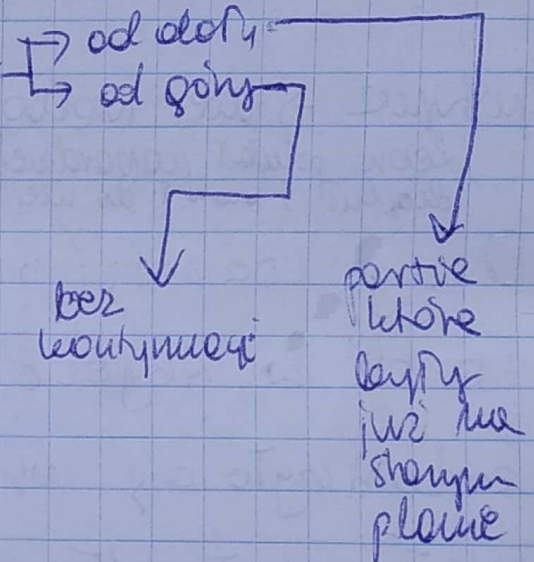 od dołu
od góry
bez
kontynuacji
partie
które
były
już na
starym
planie